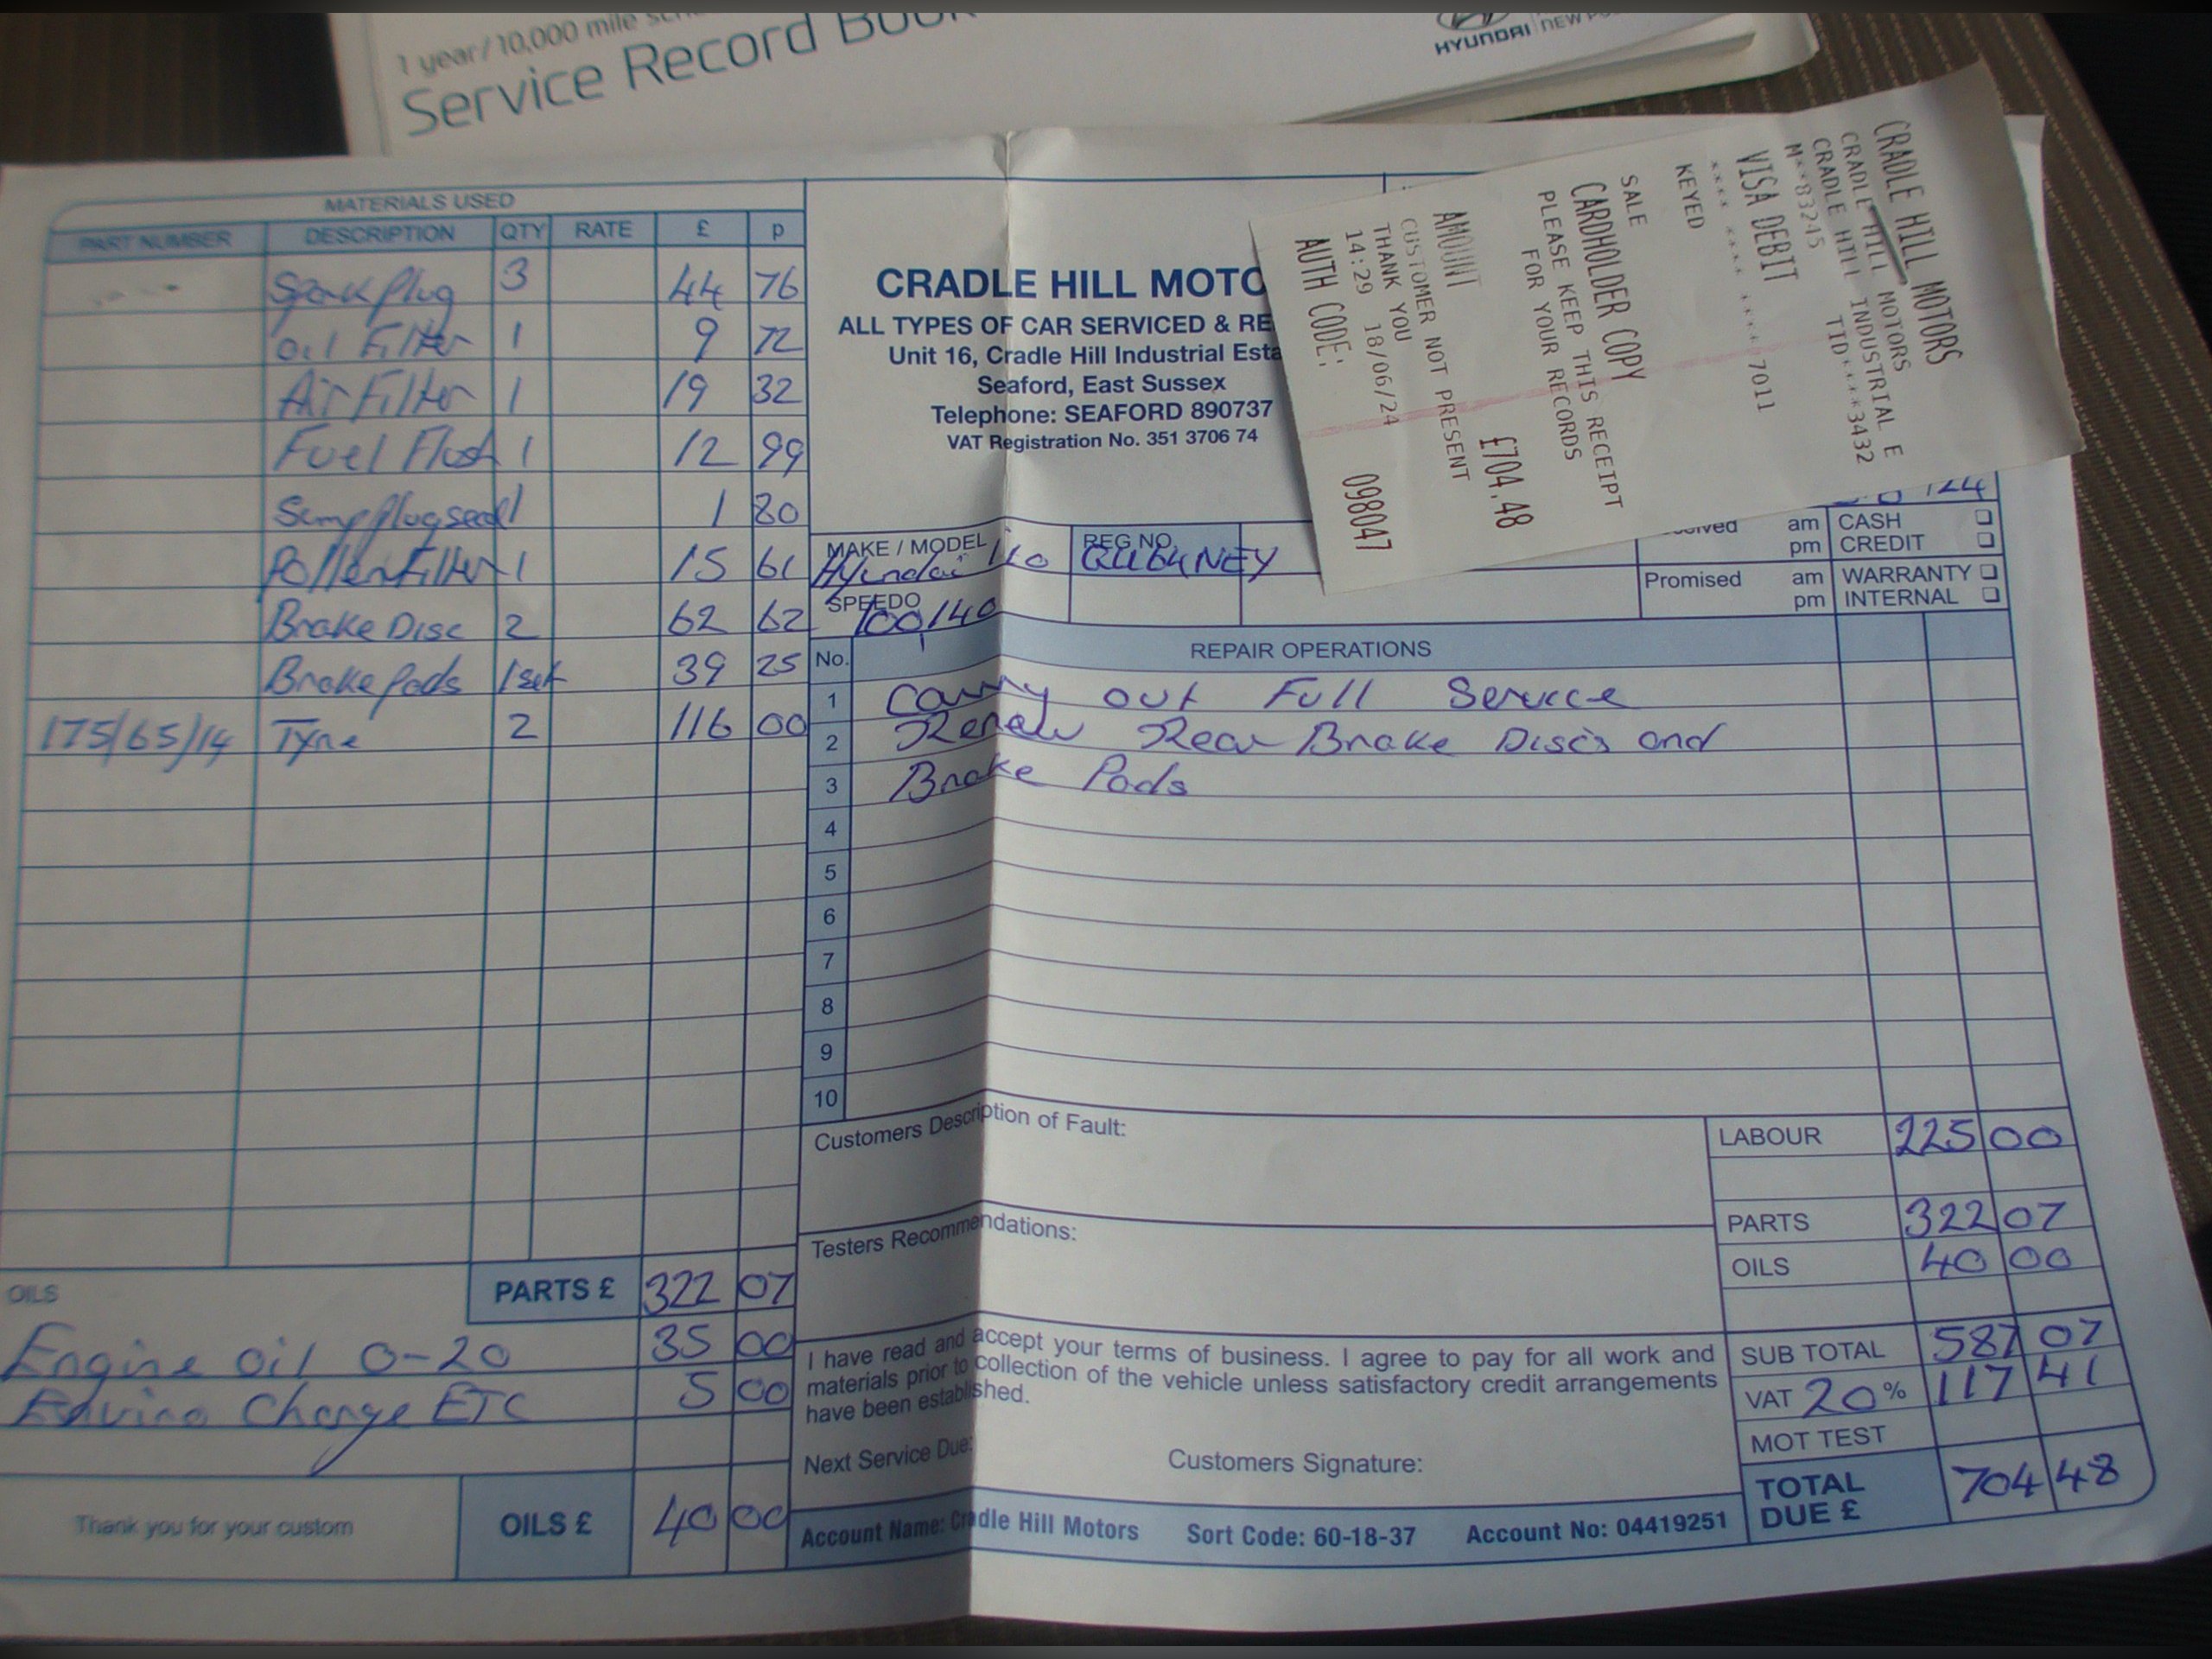 1 year / 10,000 mile
Service Record Book
HYUNDAI NEW
MATERIALS USED
PART NUMBER DESCRIPTION QTY RATE £ p
Spark Plug 3 44 76
Oil Filter 1 9 72
Air Filter 1 19 32
Fuel Flush 1 12 99
Sump plug seal 1 1 80
Pollen Filter 1 15 61
Brake Disc 2 62 62
Brake Pads 1 set 39 25
175/65/14 Tyre 2 116 00
PARTS £ 322 07
OILS
Engine Oil 0-20 35 00
Enviro Charge ETC 5 00
Thank you for your custom
OILS £ 40 00
CRADLE HILL MOTO
ALL TYPES OF CAR SERVICED & RE
Unit 16, Cradle Hill Industrial Esta
Seaford, East Sussex
Telephone: SEAFORD 890737
VAT Registration No. 351 3706 74
CRADLE HILL MOTORS
CRADLE HILL MOTORS
CRADLE HILL INDUSTRIAL E
M**83245 TID****3432
VISA DEBIT
**** **** **** 7011
KEYED
SALE
CARDHOLDER COPY
PLEASE KEEP THIS RECEIPT
FOR YOUR RECORDS
AMOUNT £704.48
CUSTOMER NOT PRESENT
THANK YOU
14:29 18/06/24
AUTH CODE: 098047
MAKE / MODEL Hyundai i10
REG NO.
SPEEDO 100140
am pm
CASH
CREDIT
Promised am pm
WARRANTY
INTERNAL
No. REPAIR OPERATIONS
1 Carry out Full Service
2 Renew Rear Brake Disc's and
3 Brake Pads
4
5
6
7
8
9
10
Customers Description of Fault:
Testers Recommendations:
I have read and accept your terms of business. I agree to pay for all work and
materials prior to collection of the vehicle unless satisfactory credit arrangements
have been established.
Next Service Due:
Customers Signature:
Account Name: Cradle Hill Motors Sort Code: 60-18-37 Account No: 04419251
LABOUR 225 00
PARTS 322 07
OILS 40 00
SUB TOTAL 587 07
VAT 20 % 117 41
MOT TEST
TOTAL
DUE £ 704 48